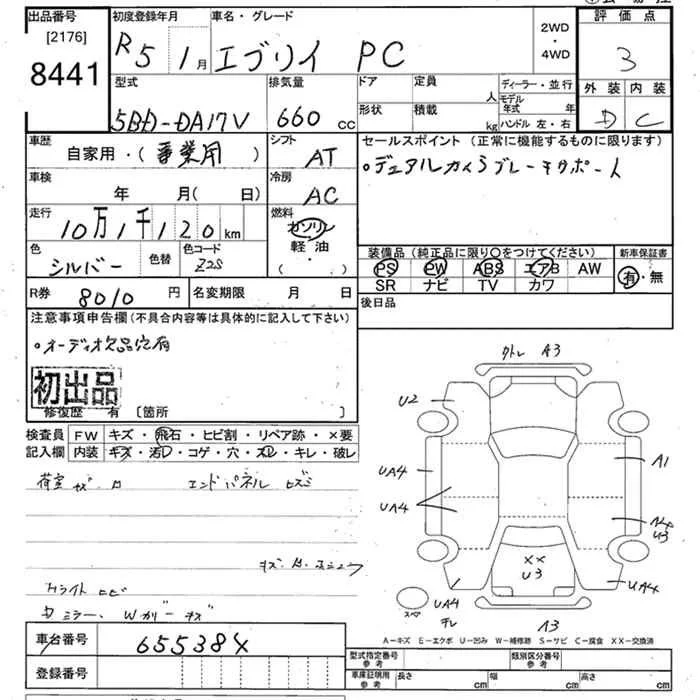 出品番号
[2176]
8441
初度登録年月
R5 1月
車名・グレード
エブリイ PC
2WD
・
4WD
評価点
3
外装 内装
D C
型式
5BD-DA17V
排気量
660 cc
ドア
形状
定員
人
積載
kg
ディーラー・並行
モデル年式 年
ハンドル 左・右
車歴
自家用・(事業用)
シフト
AT
セールスポイント (正常に機能するものに限ります)
・デュアルカメラブレーキサポート
車検
年 月(日)
冷房
AC
走行
10万1千120km
燃料
ガソリン
軽・油
( )
色
シルバー
色替
色コード
Z2S
装備品(純正品に限り〇をつけてください)
PS PW ABS エアB AW
SR ナビ TV カワ
新車保証書
有・無
R券
8010円
名変期限 月 日
後日品
注意事項申告欄(不具合内容等は具体的に記入して下さい)
・オーディオ欠品穴有
初出品
修復歴 有 [箇所 ]
検査員
記入欄
FW キズ・飛石・ヒビ割・リペア跡・×要
内装 キズ・汚レ・コゲ・穴・スレ・キレ・破レ
荷室 キズ エンドパネル
カライト
ミラー Wカバー キズ
外トレ A3
U2
UA4
UA4
A1
A4
U3
XX
U3
UA4
UA4
A3
スペア
A-キズ E-エクボ U-凹み W-補修跡 S-サビ C-腐食 XX-交換済
車台番号
655384
登録番号
型式指定番号
参考
類別区分番号
参考
車庫証明用
参考
長さ cm
幅 cm
高さ cm